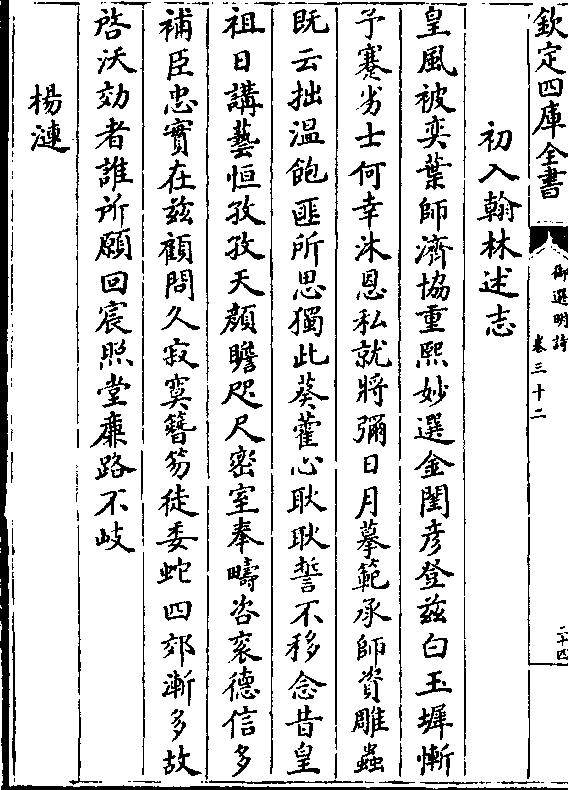 欽定四庫全書
御選明詩
卷三十二
二十四
初入翰林述志
皇風被奕葉師濟協重熙妙選金閨彦登兹白玉墀慚
予蹇劣士何幸沐恩私就將彌日月摹範承師資雕蟲
既云拙溫飽匪所思獨此葵藿心耿耿誓不移念昔皇
祖日講藝恒孜孜天顔瞻咫尺密室奉疇咨衮德信多
補臣忠實在兹顧問久寂寞簪笏徒委蛇四郊漸多故
啓沃効者誰所願回宸照堂廉路不歧
楊漣